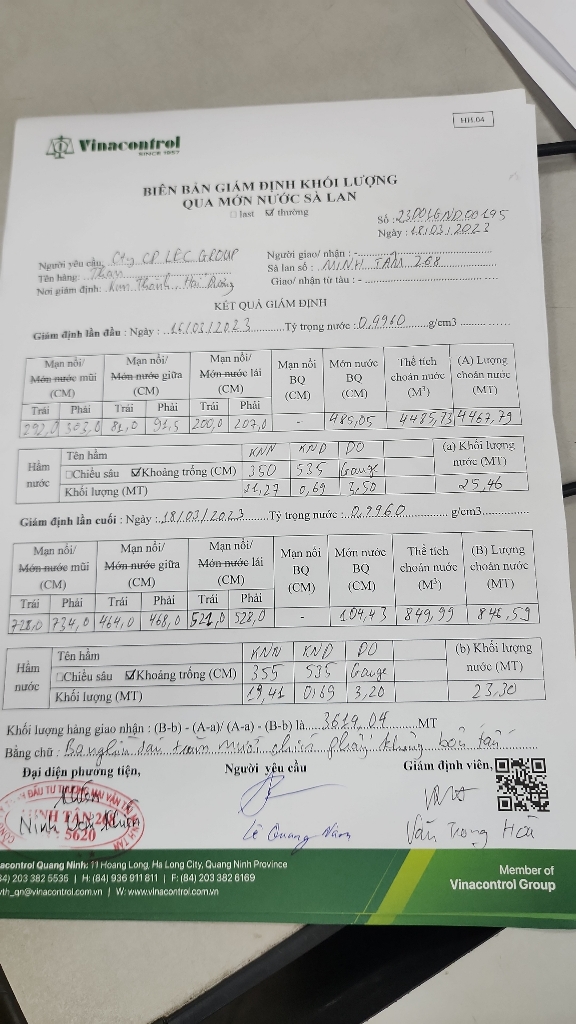 HH.04
Vinacontrol
SINCE 1957
BIÊN BẢN GIÁM ĐỊNH KHỐI LƯỢNG
QUA MỚN NƯỚC SÀ LAN
last thường
Số : 23D01GND00195
Ngày : 18/03/2023
Người yêu cầu: Cty CP LEC GROUP
Người giao/ nhận : -
Tên hàng: Than
Sà lan số : MINH TÂM 268
Nơi giám định: Kim Thành - Hải Dương
Giao/ nhận từ tàu : -
KẾT QUẢ GIÁM ĐỊNH
Giám định lần đầu : Ngày : 16/03/2023 Tỷ trọng nước : 0,9960 g/cm3
Mạn nổi/ Mớn nước mũi (CM) Mạn nổi/ Mớn nước giữa (CM) Mạn nổi/ Mớn nước lái (CM) Mạn nổi BQ (CM) Mớn nước BQ (CM) Thể tích choán nước (M³) (A) Lượng choán nước (MT)
Trái Phải Trái Phải Trái Phải
292,0 303,0 81,0 91,5 200,0 207,0 - 485,05 4485,73 4467,79
Hầm nước
Tên hầm KNN KND DO (a) Khối lượng nước (MT)
Chiều sâu Khoảng trống (CM) 350 535 Gauge
Khối lượng (MT) 21,27 0,69 3,50 25,46
Giám định lần cuối : Ngày : 18/03/2023 Tỷ trọng nước : 0,9960 g/cm3
Mạn nổi/ Mớn nước mũi (CM) Mạn nổi/ Mớn nước giữa (CM) Mạn nổi/ Mớn nước lái (CM) Mạn nổi BQ (CM) Mớn nước BQ (CM) Thể tích choán nước (M³) (B) Lượng choán nước (MT)
Trái Phải Trái Phải Trái Phải
728,0 734,0 464,0 468,0 521,0 528,0 - 104,43 849,99 846,59
Hầm nước
Tên hầm KNN KND DO (b) Khối lượng nước (MT)
Chiều sâu Khoảng trống (CM) 355 535 Gauge
Khối lượng (MT) 19,41 0,69 3,20 23,30
Khối lượng hàng giao nhận : (B-b) - (A-a)/ (A-a) - (B-b) là 3619,04 MT
Bằng chữ : Ba nghìn sáu trăm mười chín phẩy không bốn tấn
Đại diện phương tiện, Người yêu cầu Giám định viên,
5620
Lê Quang Năm
Văn Trọng Hoà
acontrol Quang Ninh: 11 Hoang Long, Ha Long City, Quang Ninh Province
84) 203 382 5536 | H: (84) 936 911 811 | F: (84) 203 382 6169
vth_qn@vinacontrol.com.vn | W: www.vinacontrol.com.vn
Member of
Vinacontrol Group